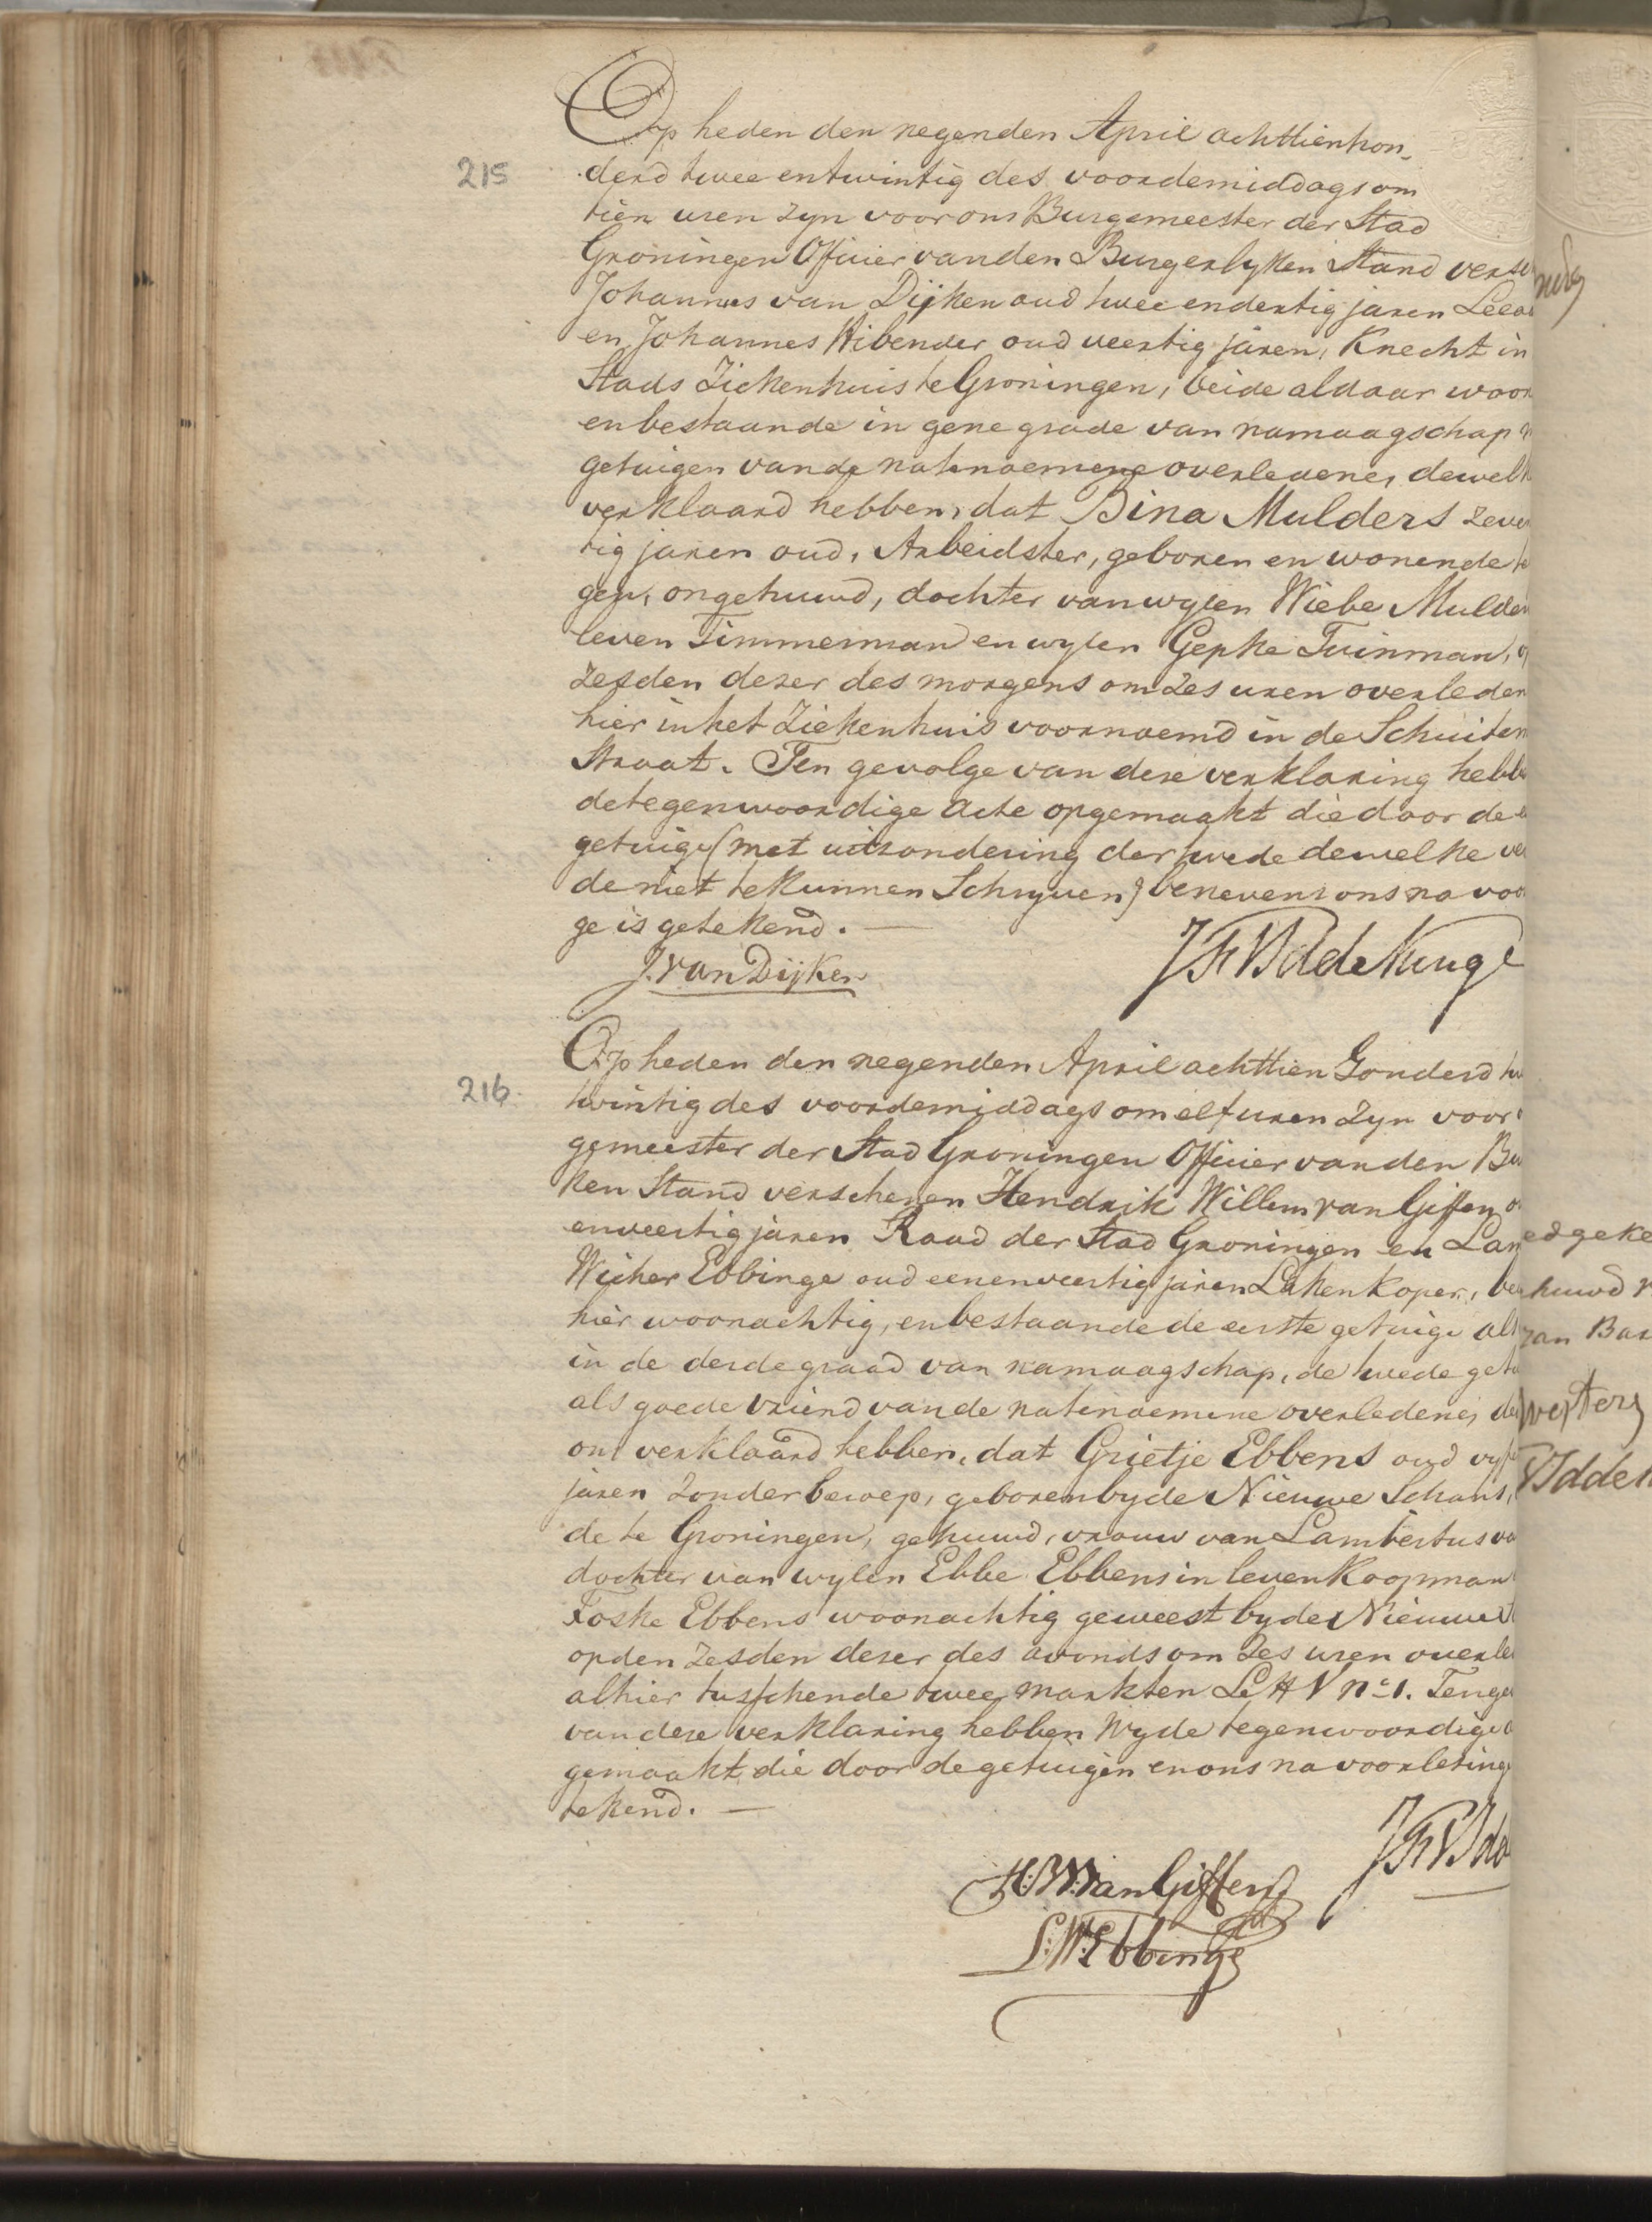 Op heden den negenden April achttienhon-
215 derd twee entwintig des voordemiddags om
tien uren zyn voor ons Burgemeester der Stad
Groningen Officier vanden Burgerlyken Stand versc
Johannes van Dijken oud twee endertig jaren
en Johannes Wibender oud veertig jaren, Knecht in
Stads Ziekenhuis te Groningen, beide aldaar woon
en bestaande in gene grade van namaagschap
getuigen vande natenoemene overledene, dewelk
verklaard hebben, dat Dina Mulders zeven
tig jaren oud, Arbeidster, geboren en wonende te
gen, ongehuwd, dochter van wylen Wiebe Mulder
leven Timmerman en wylen Gepke Tuinman, op
zesden dezer des morgens om zes uren overleden
hier in het Ziekenhuis voornoemd in de Schuiten
Straat. Ten gevolge van deze verklaring hebbe
de tegenwoordige acte opgemaakt die door de e
getuige (met uitzondering der twede dewelke ver
de niet te kunnen Schryven) benevens ons na voor
ge is getekend. —
J. van Dijken
Op heden den negenden April achttien Honderd tw
216. twintig des voordemiddags om elf uren zyn voor
gemeester der Stad Groningen Officier vanden Bu
ken Stand verschenen Hendrik Willem van Giffen o
enveertig jaren Raad der Stad Groningen en Lam
Wicher Ebbinge oud eenenveertig jaren Lakenkoper, be
hier woonachtig, en bestaande de eerste getuige als
in de derde graad van namaagschap, de twede getu
als goede vriend vande natenoemene overledene, de
ons verklaard hebben, dat Grietje Ebbens oud vyf
jaren zonder beroep, geboren by de Nieuwe Schans,
de te Groningen, gehuwd, vrouw van Lambertus va
dochter van wylen Ebbe Ebbens in leven Koopman
Foske Ebbens woonachtig geweest by de Nieuwe
op den zesden dezer des avonds om zes uren overle
alhier tusschende twee markten Lett V no 1. Tenge
van deze verklaring hebben wy de tegenwoordige
gemaakt die door de getuigen en ons na voorlezing
tekend. —
H:W:van Giffen
L:W:Ebbinge